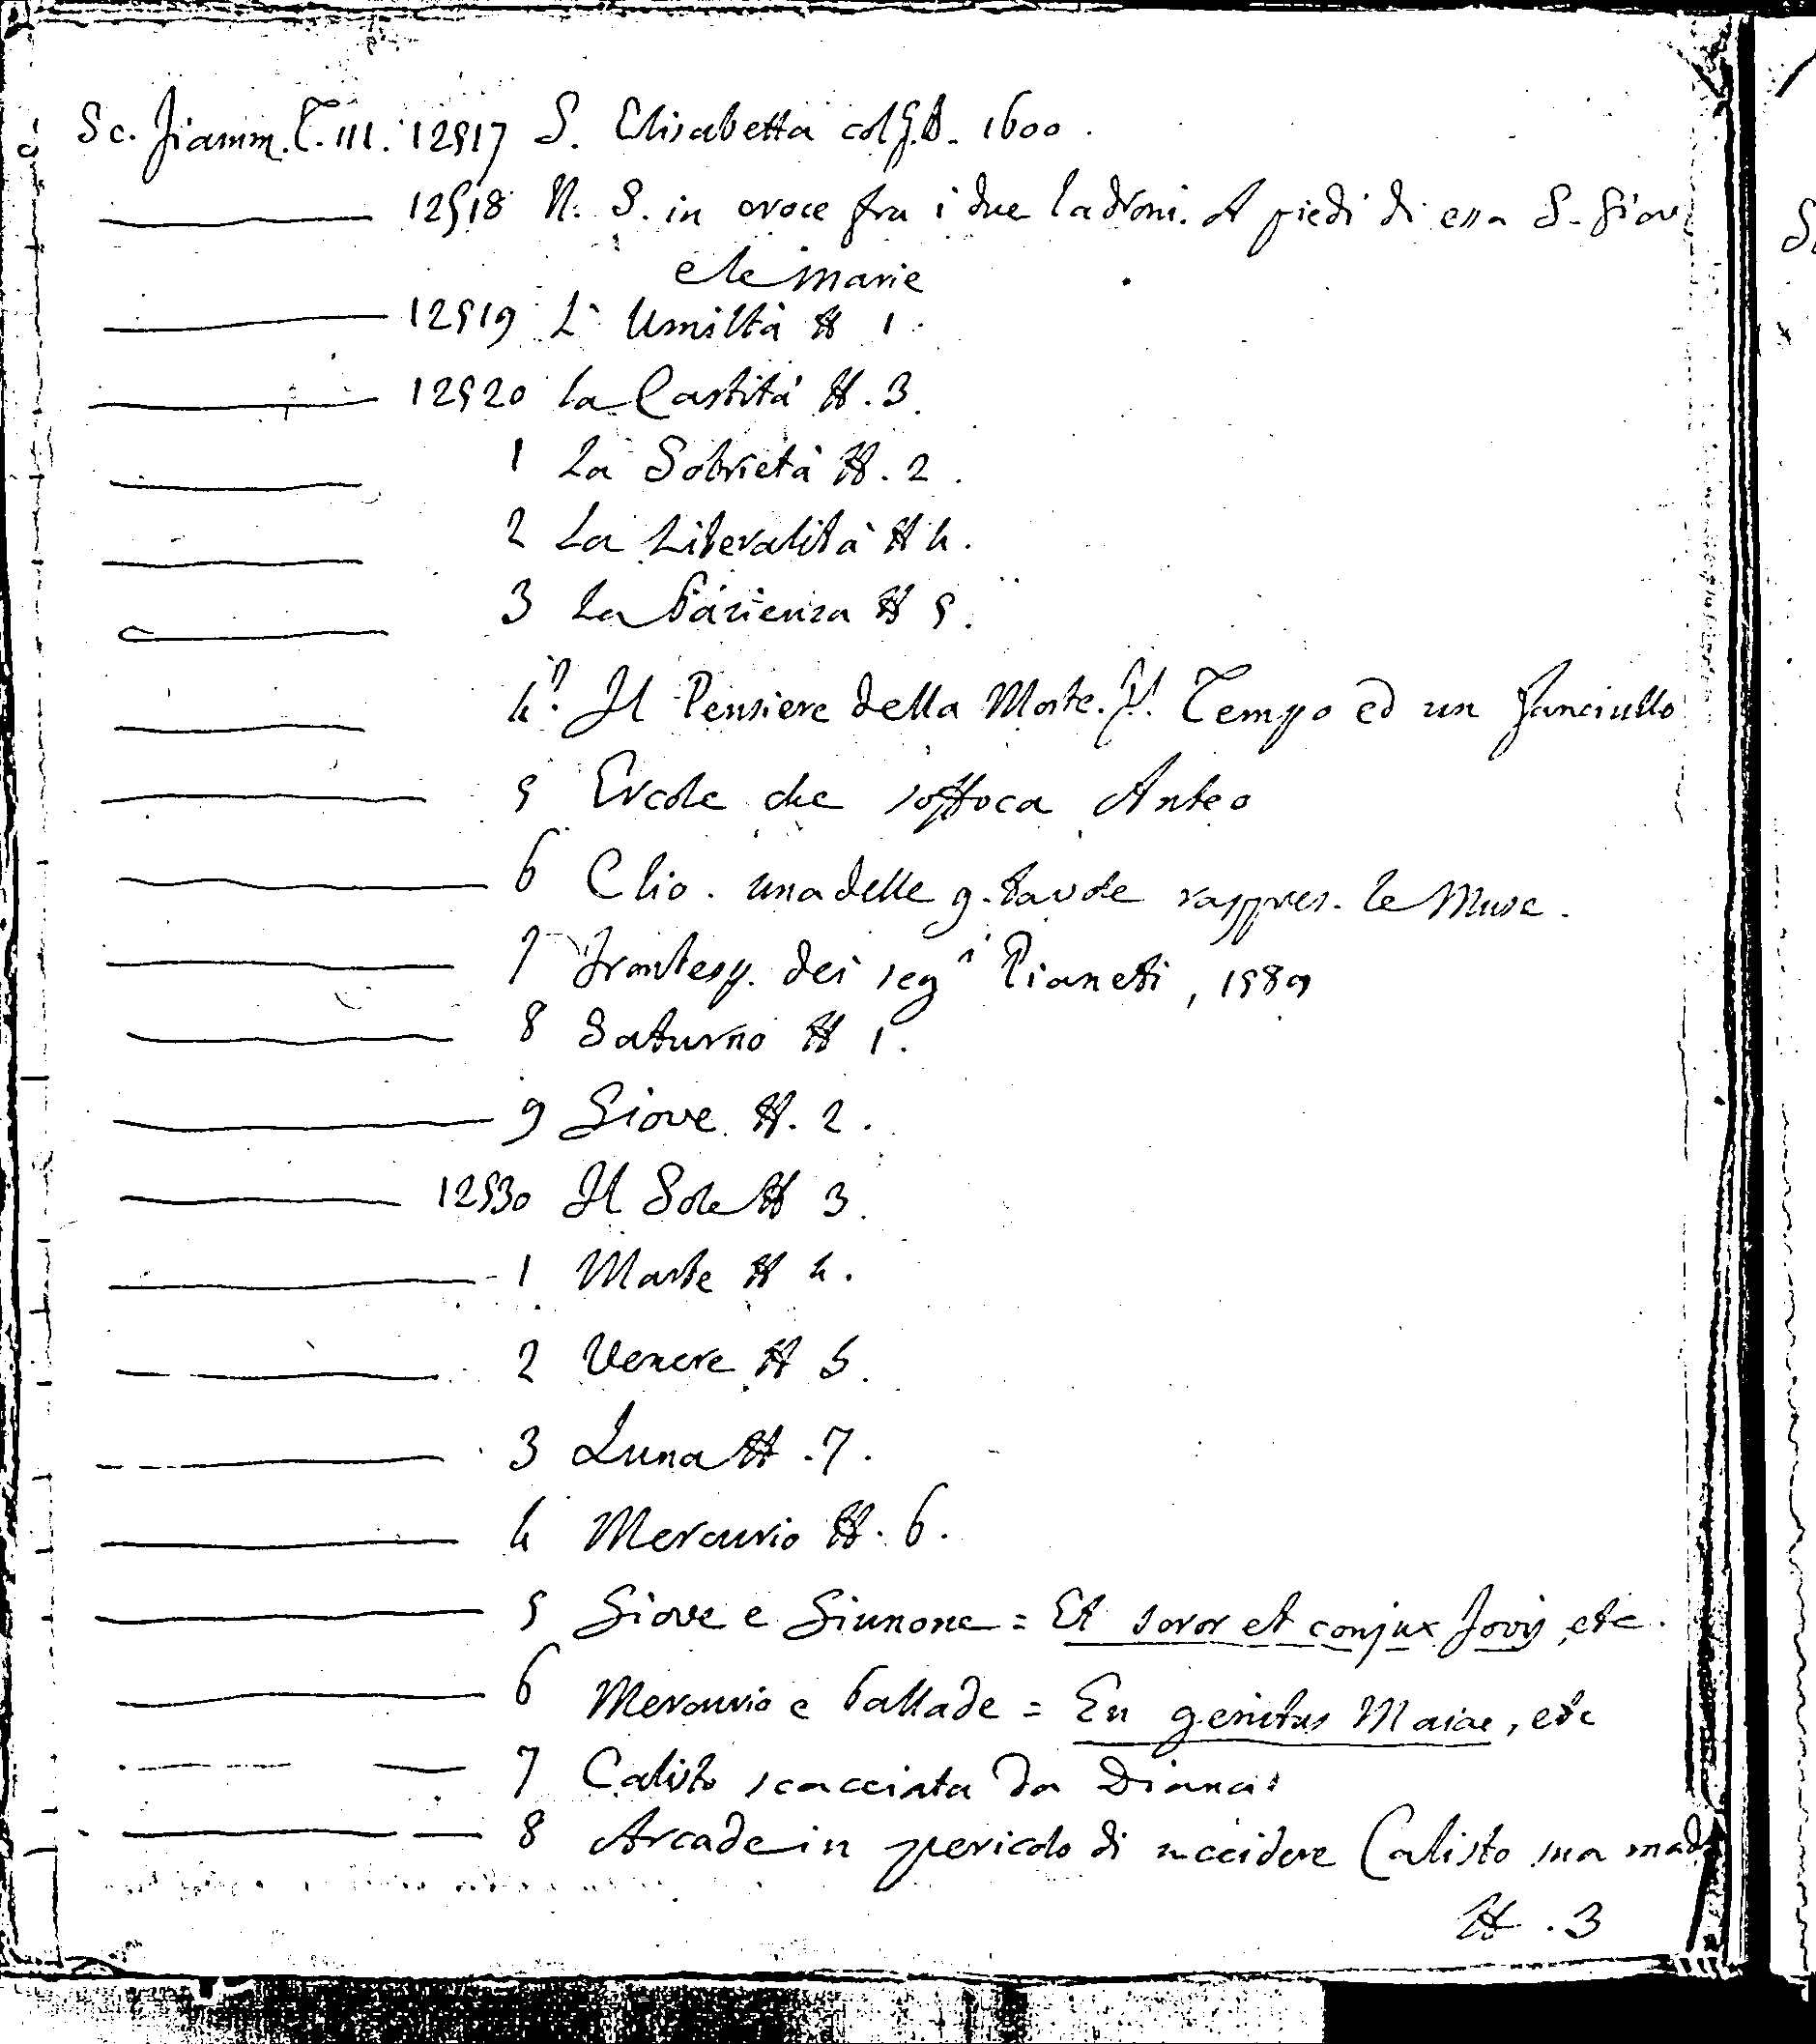 Sc. fiamm. T. III. 12517 S. Elisabetta col G.B. 1600.
12518 N. S. in croce fra i due ladroni. A piedi di essa S. Giov
e le Marie
12519 L' Umiltà # 1.
12520 La Castità #. 3.
1 La Sobrietà #. 2.
2 La Liberalità # 4.
3 La Pazienza # 5.
4 Il Pensiere della Morte. Tempo ed un fanciullo
5 Ercole che soffoca Anteo
6 Clio. una delle 9. tavole rappres. le Muse.
7 frontesp. dei seg i Pianeti, 1589
8 Saturno # 1.
9 Giove #. 2.
12530 Il Sole # 3.
1 Marte # 4.
2 Venere # 5.
3 Luna # .7.
4 Mercurio #. 6.
5 Giove e Giunone = Et soror et conjux Jovis, etc.
6 Mercurio e Pallade = En genitus Maiae, etc
7 Calisto scacciata da Diana
8 Arcade in pericolo di uccidere Calisto sua mad
# . 3